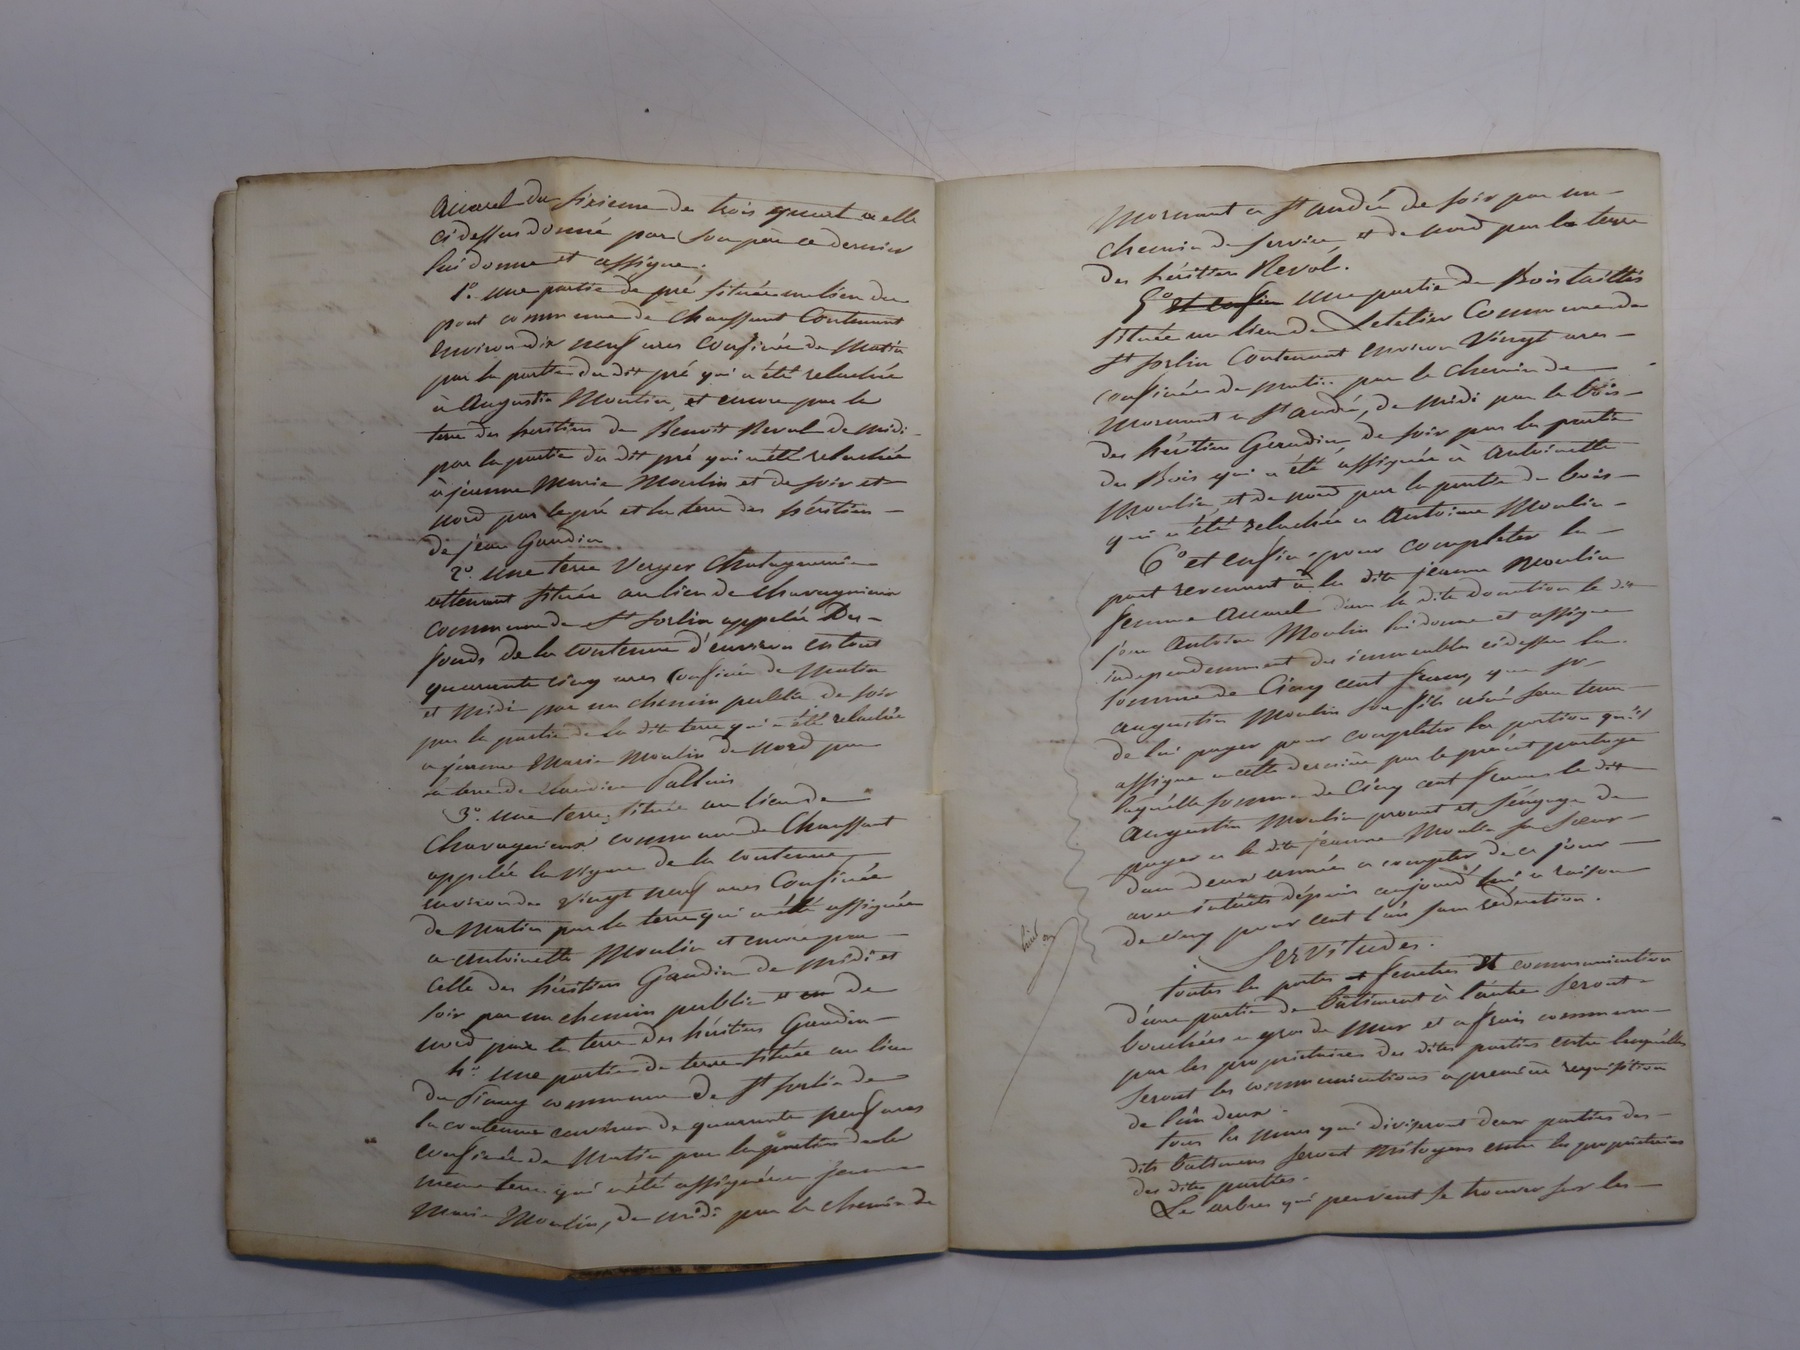 accarel du sixieme de trois quart a elle
ci dessus donné par son père ce dernier
lui donne et assigne.
1º. une partie de pré située au lieu du
pont commune de Chaussant Contenant
environ dix neuf ares Confinée de Matin
par la partie du dit pré qui a été relachée
à Augustin Moulin, et encore par la
terre des heritiers de Benoit Reval de midi
par la partie du dit pré qui a été relachée
à jeanne Marie Moulin et de soir et
nord par le pré et la terre des héritiers
de jean Gaudin
2º. une terre Verger Chatagneraie
attenant située au lieu de Chavagnieux
commune de St Sorlin appelée Des
fonds de la contenue d'environ en tout
quarante cinq ares Confinée de Matin
et Midi par un chemin public de soir
par la partie de la dite terre qui a été relachée
a jeanne Marie Moulin de nord par
la terre de Claudine
3º. une terre située au lieu de
Chavagnieux commune de Chaussant
appelée la vigne de la contenue
environ de vingt neuf ares Confinée
de Matin par la terre qui a été assignée
a antoinette Moulin et encore par
celle des héritiers Gaudin de midi et
soir par un chemin public et en de
nord par la terre des héritiers Gaudin
4º. une partie de terre située au lieu
du commune de St Sorlin de
la contenue environ de quarante neuf ares
confinée de Matin par la partie de la
meme terre qui a été assignée a jeanne
Marie Moulin, de midi par le chemin de
Mornant a St andré de soir par un
chemin de service et de nord par la terre
des héritiers Reval.
5º et enfin une partie de Bois taillis
située au lieu de Letelier Commune de
St Sorlin Contenant environ Vingt ares
confinée de matin par le chemin de
Mornant a St andré, de midi par le bois
des héritiers Geradin de soir par la partie
du Bois qui a été assignée à Antoinette
Moulin, et de nord par la partie de bois
qui a été relachée a Antoine Moulin
6º et enfin pour completer la
part revenant à la dite jeanne Moulin
femme accarel dans la dite donation le dit
jean Antoine Moulin lui donne et assigne
independamment des immeubles ci dessus la
somme de Cinq cent francs, que
augustin Moulin son fils ainé sera tenu
de lui payer pour completer la portion qu'il
assigne a cette derniere par le présent partage
laquelle somme de Cinq cent francs le dit
Augustin Moulin promet et s'éngage de
payer a la dite jeanne Moulin sa sœur
dans deux années a compter de ce jour
avec intérêts dépuis aujourd'hui a raison
de cinq pour cent l'an sans réduction.
Servitudes.
toutes les portes et fenetres et communication
d'une partie de batiment à l'autre seront
bouchées en gros de mur et a frais communs
par les propriétaires des dites parties entre lesquelles
seront les communications a première requisition
de l'un deux.
tous les murs qui diviseront deux parties des
dits batimens seront mitoyens entre les propriétaires
des dites parties.
Les arbres qui peuvent se trouver sur les